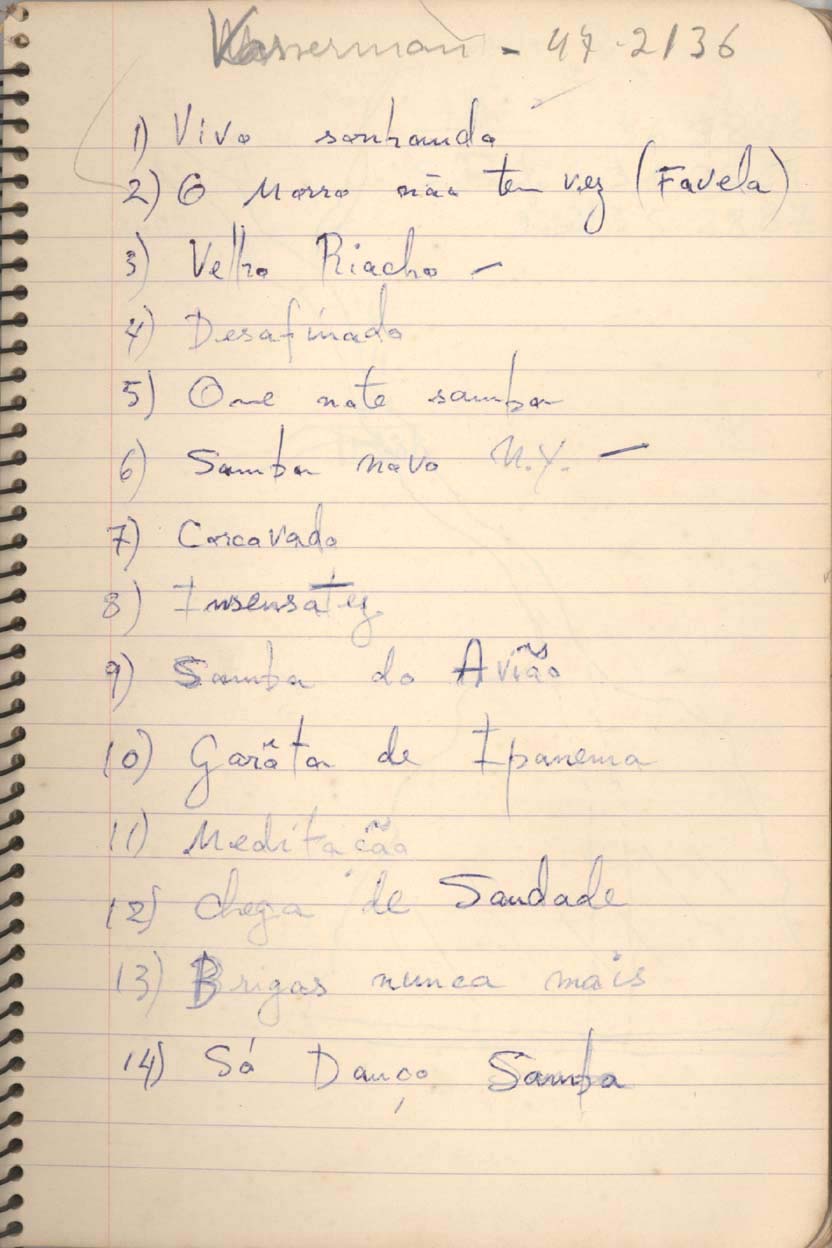 Wasserman - 47-2136
1) Vivo sonhando
2) O Morro não tem vez (Favela)
3) Velho Riacho -
4) Desafinado
5) One note samba
6) Samba novo N.Y. -
7) Corcovado
8) Insensatez
9) Samba do Avião
10) Garôta de Ipanema
11) Meditação
12) Chega de Saudade
13) Brigas nunca mais
14) Só Danço Samba